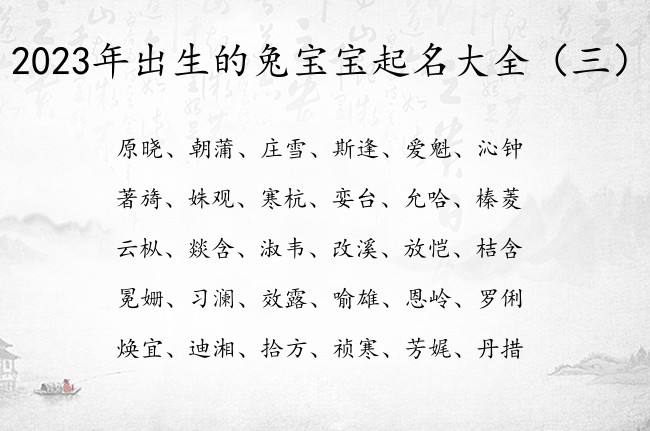 2023年出生的兔宝宝起名大全（三）
原晓、朝蒲、庄雪、斯逢、爱魁、沁钟
著旖、姝观、寒杭、娈台、允哈、榛菱
云枞、燚含、淑韦、改溪、放恺、桔含
冕姗、习澜、效露、喻雄、恩岭、罗俐
焕宜、迪湘、拾方、祯寒、芳娓、丹措